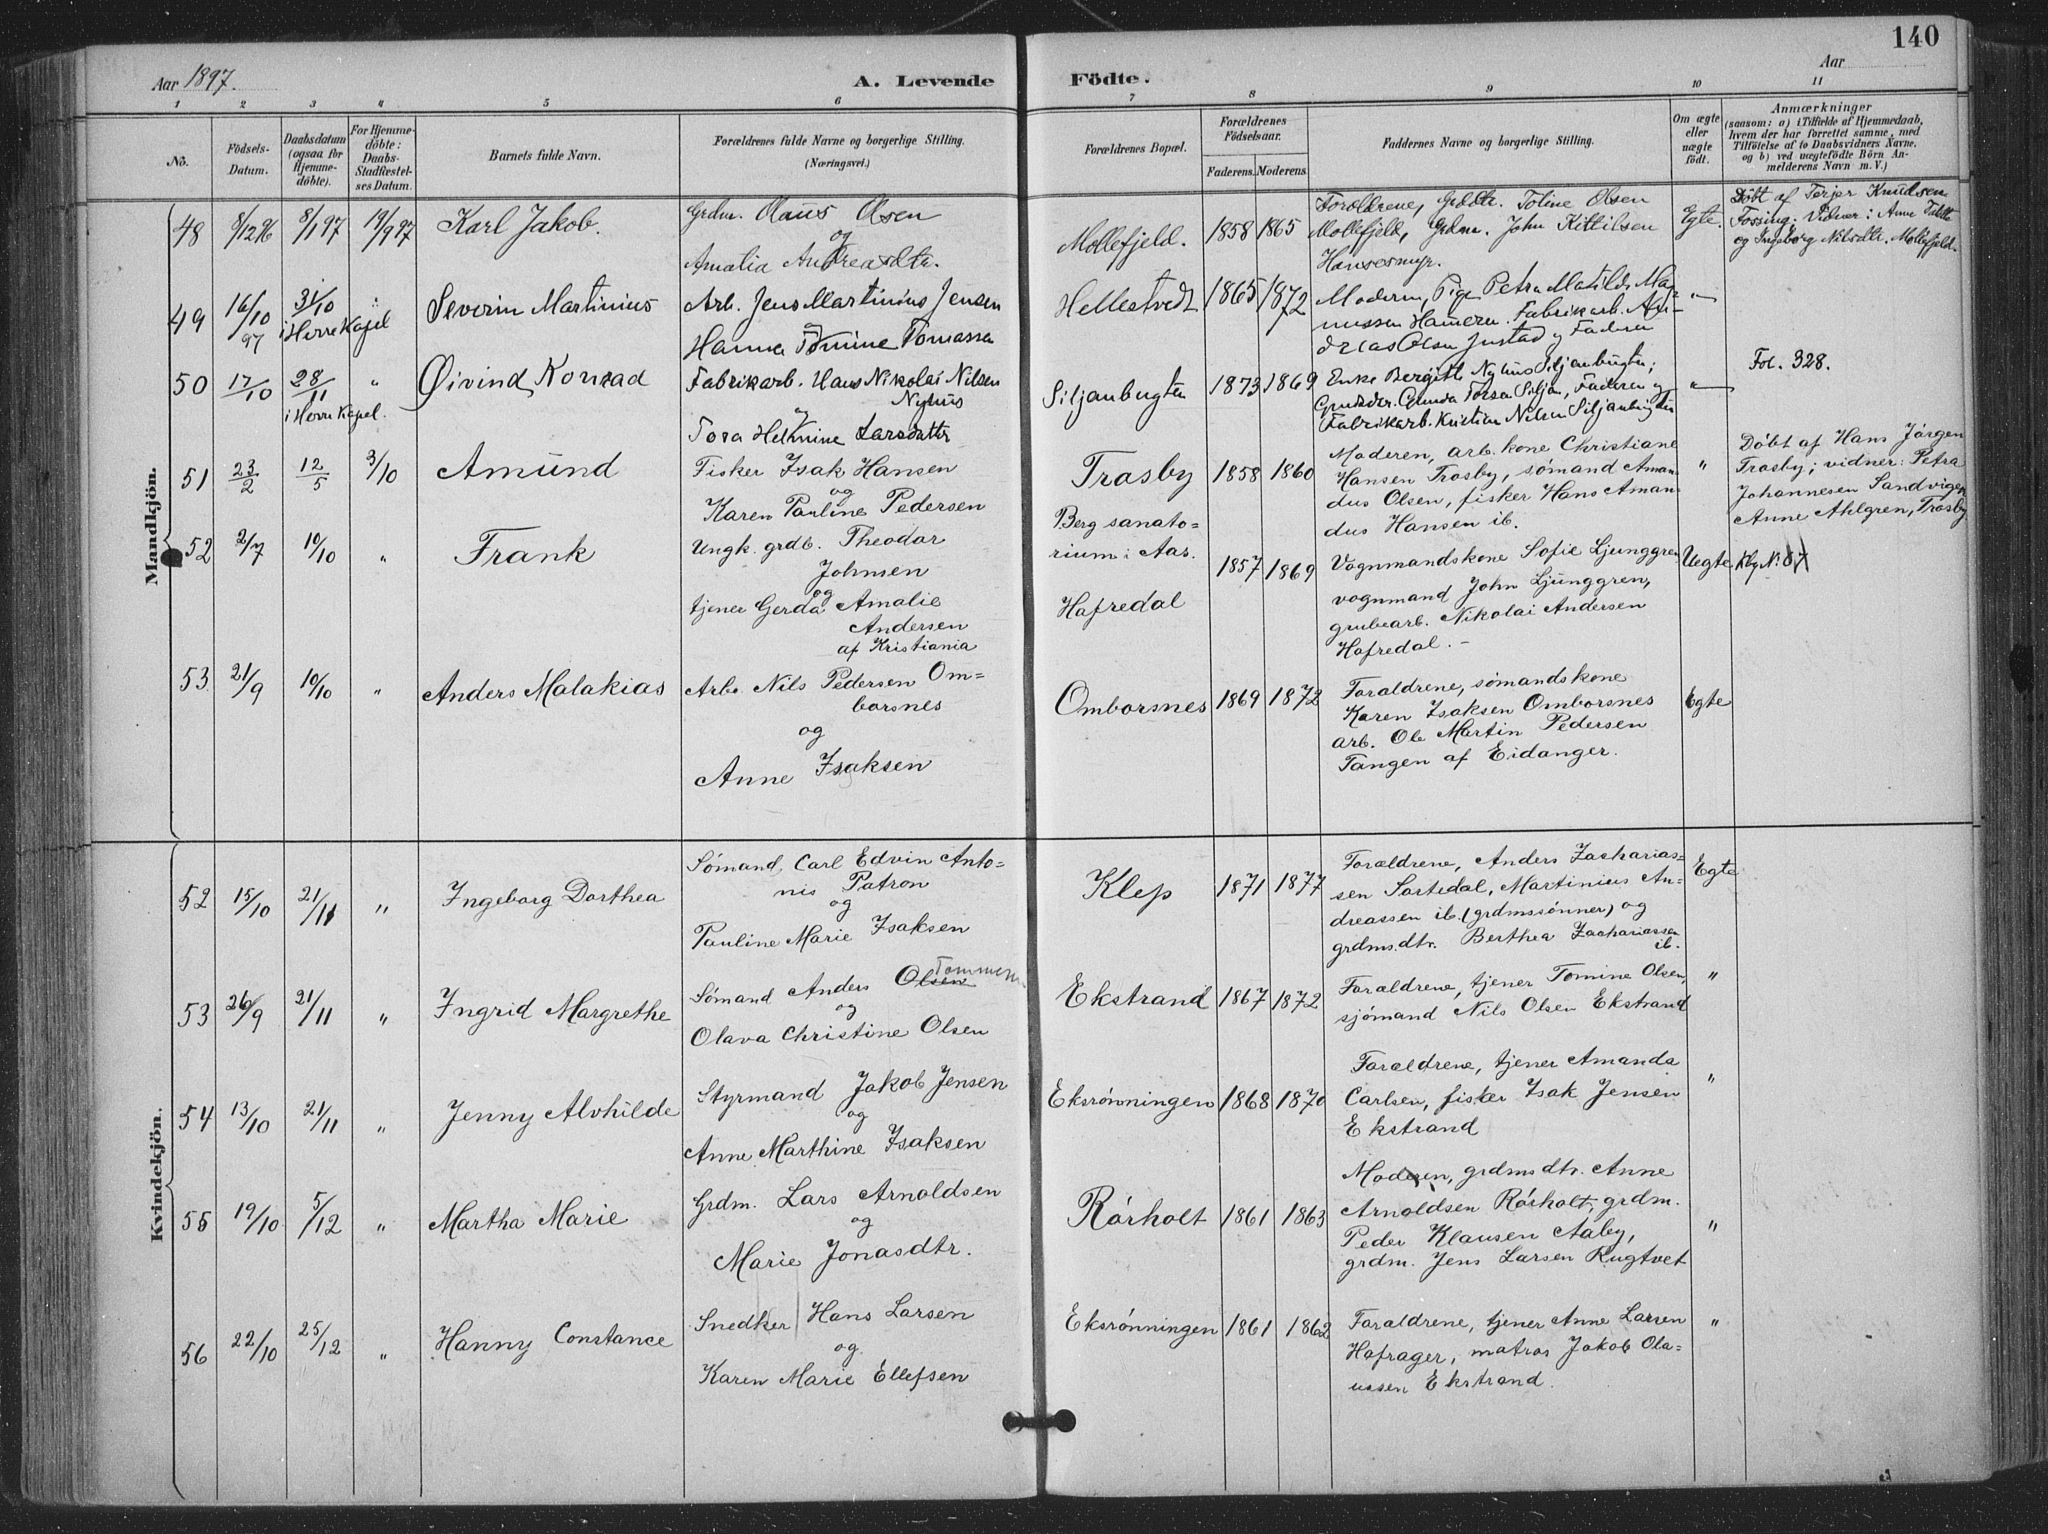 140
Aar 1897.
A. Levende Födte.
Aar
1 2 3 4 5 6 7 8 9 10 11
No.
Födsels-Datum.
Daabsdatum (ogsaa for Hjemme-döbte).
For Hjemme-döbte: Daabs-Stadfæstel-ses Datum.
Barnets fulde Navn.
Forældrenes fulde Navne og borgerlige Stilling. (Næringsvei.)
Forældrenes Bopæl.
Forældrenes Födselsaar.
Faderens. Moderens.
Faddernes Navne og borgerlige Stilling.
Om ægte eller uægte födt.
Anmærkninger
(saasom: a) i Tilfælde af Hjemmedaab, hvem der har forrettet samme, med Tilföielse af to Daabsvidners Navne, og b) ved uægtefödte Börn An-melderens Navn m. V.)
Mandkjön.
48 8/12 96 8/1 97 19/9 97 Karl Jakob.
Grdm. Olaus Olsen
og
Amalia Andreasdtr.
Mollefjeld. 1858 1865
Forældrene, Grddtr. Toline Olsen
Mollefjeld, Grdm. John Kittilsen
Hansesmyr.
Egte.
Döbt af Terjer Knudsen
Fossing. Vidner: Anne
og Ingeborg Nilsdtr. Mollefjeld.
49 16/10 97 31/10 i Herre Kapel " Severin Martinius
Arb. Jens Martinius Jensen
og
Hanna Tomine Tomassen
Hellestvedt 1865 1872
Moderen, Pige Petra Matilde Mag-
nussen Hameren. Fabrikarb. An-
dreas Olsen Justad og Faderen
"
50 17/10 28/11 i Herre Kapel. " Øivind Konrad
Fabrikarb. Hans Nikolai Nilsen
Nyhus
og
Tora Helmine Larsdattr
Siljanbugten 1873 1869
Enke Bergitte Nyhus Siljanbugten;
Grdmdr. Gunda Torsen Siljan, Faderen og
Fabrikarb. Kristian Nilsen Siljanbugten
"
Fol. 328.
51 23/2 12/5 3/10 Amund
Fisker Isak Hansen
og
Karen Pauline Pedersen
Trasby 1858 1860
Moderen, arb. kone Christiane
Hansen Trosby, sømand Aman-
dus Olsen, fisker Hans Aman-
dus Hansen ib.
"
Döbt af Hans Jörgen
Trosby; vidner: Petra
Johannesen Sandvigen
Anne Ahlgren, Trosby
52 2/7 10/10 " Frank
Ungk. grdb. Theodor
Johnsen
og
tjener Gerda Amalie
Andersen
af Kristiania
Berg sanato-
rium i Aas.
Hafredal
1857 1869
Vognmandskone Sofie Ljunggren
vognmand John Ljunggren,
grubearb. Nikolai Andersen
Hafredal. -
Uegte
53 21/9 10/10 " Anders Malakias
Arb. Nils Pedersen Om-
borsnes
og
Anne Isaksen
Omborsnes 1869 1872
Forældrene, sømandskone
Karen Isaksen Omborsnes
arb. Ole Martin Pedersen
Tangen af Eidanger.
Egte
Kvindekjön.
52 15/10 21/11 " Ingeborg Dorthea
Sømand Carl Edvin Anto-
nis Patron
og
Pauline Marie Isaksen
Klep 1871 1877
Forældrene, Anders Zacharias-
sen Sortedal, Martinius An-
dreassen ib. (grdmssønner) og
grdms.dtr. Berthea Zachariassen
ib.
Egte
53 26/9 21/11 " Ingrid Margrethe
Sømand Anders Olsen Tommesen
og
Olava Christine Olsen
Ekstrand 1867 1872
Forældrene, tjener Tomine Olsen,
sjømand Nils Olsen Ekstrand
"
54 13/10 21/11 " Jenny Alvhilde
Styrmand Jakob Jensen
og
Anne Marthine Isaksen
Eksrønningen 1868 1870
Forældrene, tjener Amanda
Carlsen, fisker Isak Jensen
Ekstrand
"
55 19/10 5/12 " Martha Marie
Grdm. Lars Arnoldsen
og
Marie Jonasdtr.
Rørholt 1861 1863
Moderen, grdmsdtr. Anne
Arnoldsen Rørholt, grdm.
Peder Klausen Aaby,
grdm. Jens Larsen Rugtvet
"
56 22/10 25/12 " Hanny Constance
Snedker Hans Larsen
og
Karen Marie Ellefsen
Eksrønningen 1861 1862
Forældrene, tjener Anne Larsen
Hafrager, matros Jakob Ola-
ussen Ekstrand.
"